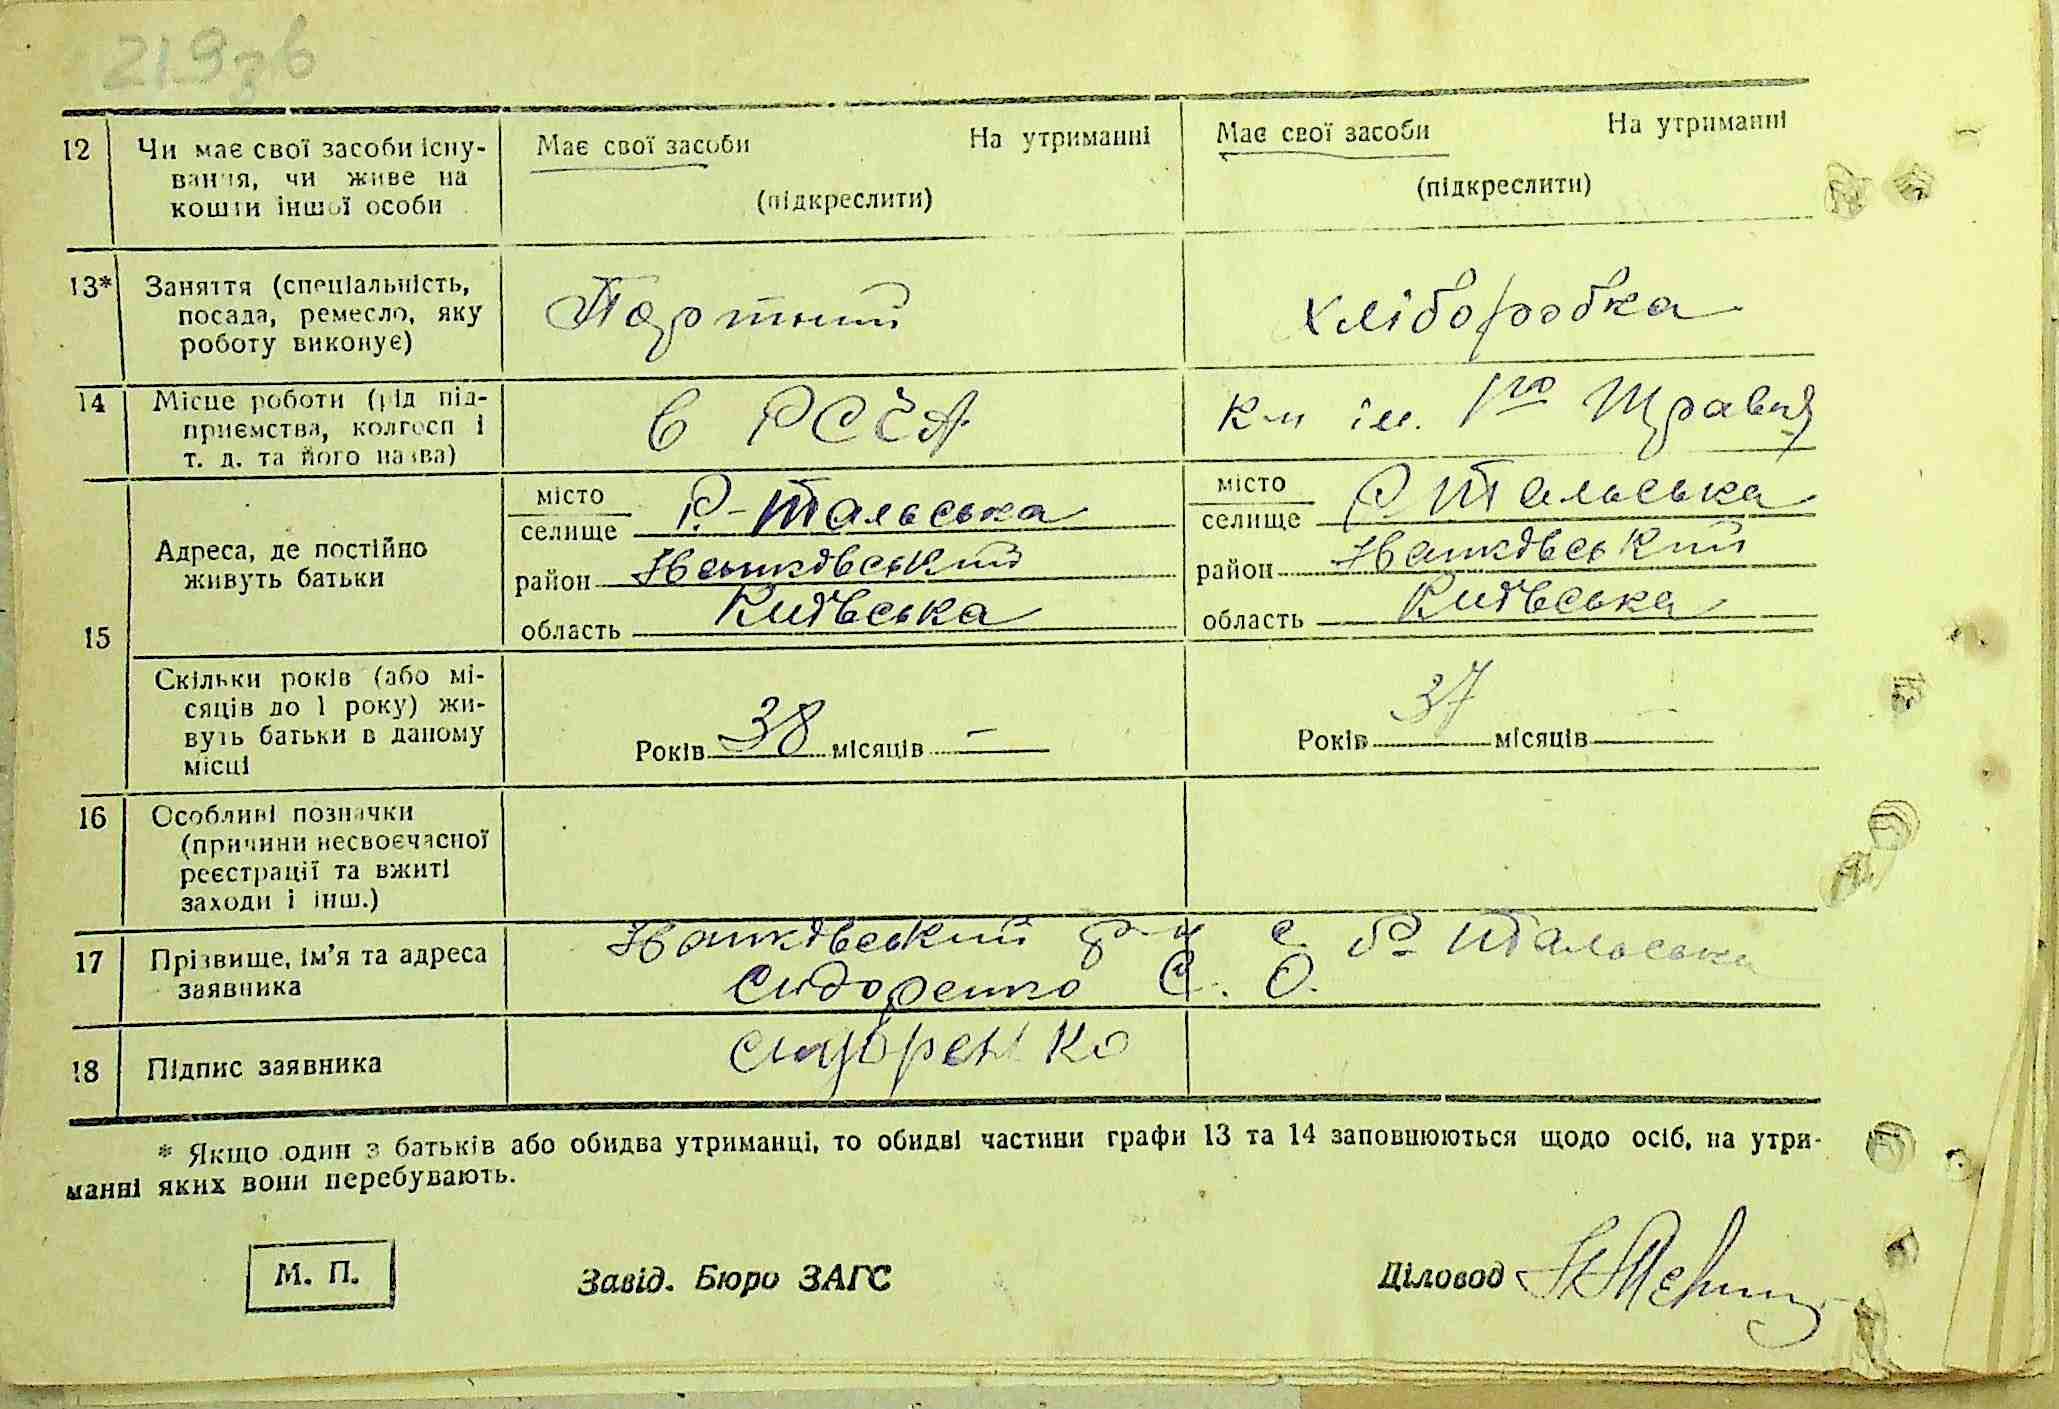 219зв
12 Чи має свої засоби існу- Має свої засоби На утриманні Має свої засоби На утриманні
вання, чи живе на (підкреслити) (підкреслити)
кошти іншої особи
13* Заняття (спеціальність, Портний Хліборобка
посада, ремесло, яку
роботу виконує)
14 Місце роботи (рід під- в РСЧА К-п ім. 1го Травня
приємства, колгосп і
т. д. та його назва)
15 Адреса, де постійно
живуть батьки
місто селище Р-Тальська місто селище Р Тальська
район Іванківський район Іванківський
область Київська область Київська
Скільки років (або мі-
сяців до 1 року) жи-
вуть батьки в даному
місці
Років 38 місяців — Років 37 місяців —
16 Особливі позначки
(причини несвоєчасної
реєстрації та вжиті
заходи і інш.)
17 Прізвище, ім'я та адреса Іванківський р-н с Р Тальська
заявника Сидоренко С. О.
18 Підпис заявника Сидоренко
* Якщо один з батьків або обидва утриманці, то обидві частини графи 13 та 14 заповнюються щодо осіб, на утри-
манні яких вони перебувають.
М. П. Завід. Бюро ЗАГС Діловод